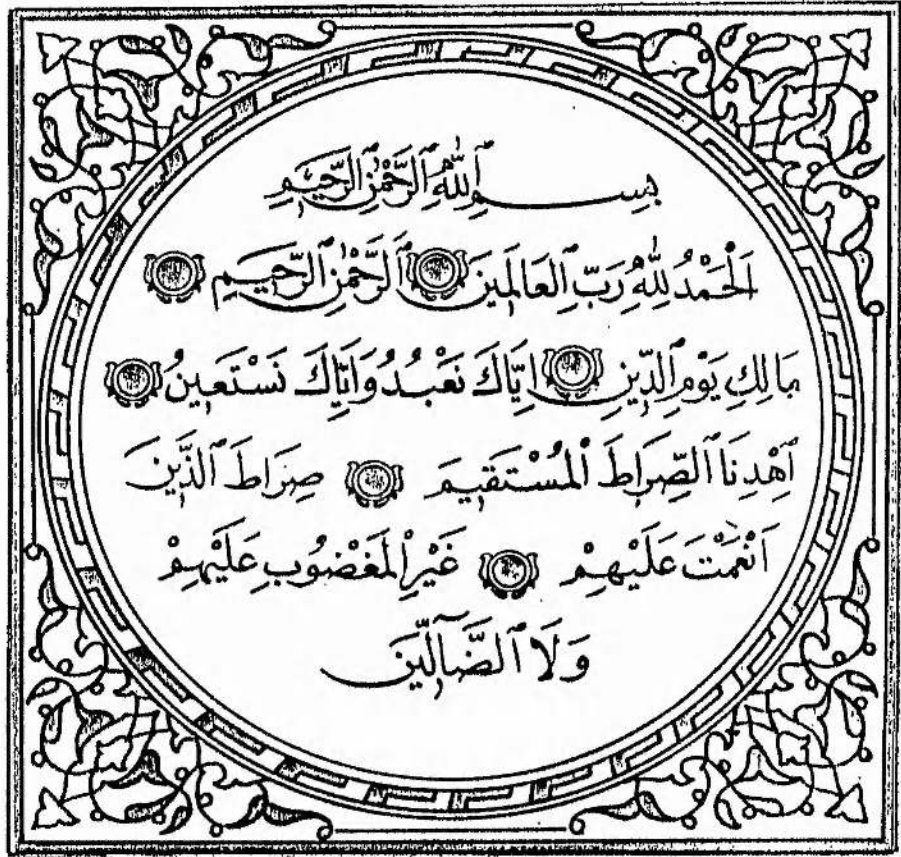 بِسْمِ ٱللّٰهِ ٱلرَّحْمٰنِ ٱلرَّحِيمِ
اَلْحَمْدُ لِلّٰهِ رَبِّ ٱلعَالَمِينَ ٱلرَّحْمٰنِ ٱلرَّحِيمِ
مَالِكِ يَوْمِ ٱلدِّينِ اِيَّاكَ نَعْبُدُ وَاِيَّاكَ نَسْتَعِينُ
ٱهْدِنَا ٱلصِّرَاطَ ٱلْمُسْتَقِيمَ صِرَاطَ ٱلَّذِينَ
اَنْعَمْتَ عَلَيْهِمْ غَيْرِ ٱلْمَغْضُوبِ عَلَيْهِمْ
وَلَا ٱلضَّآلِّينَ